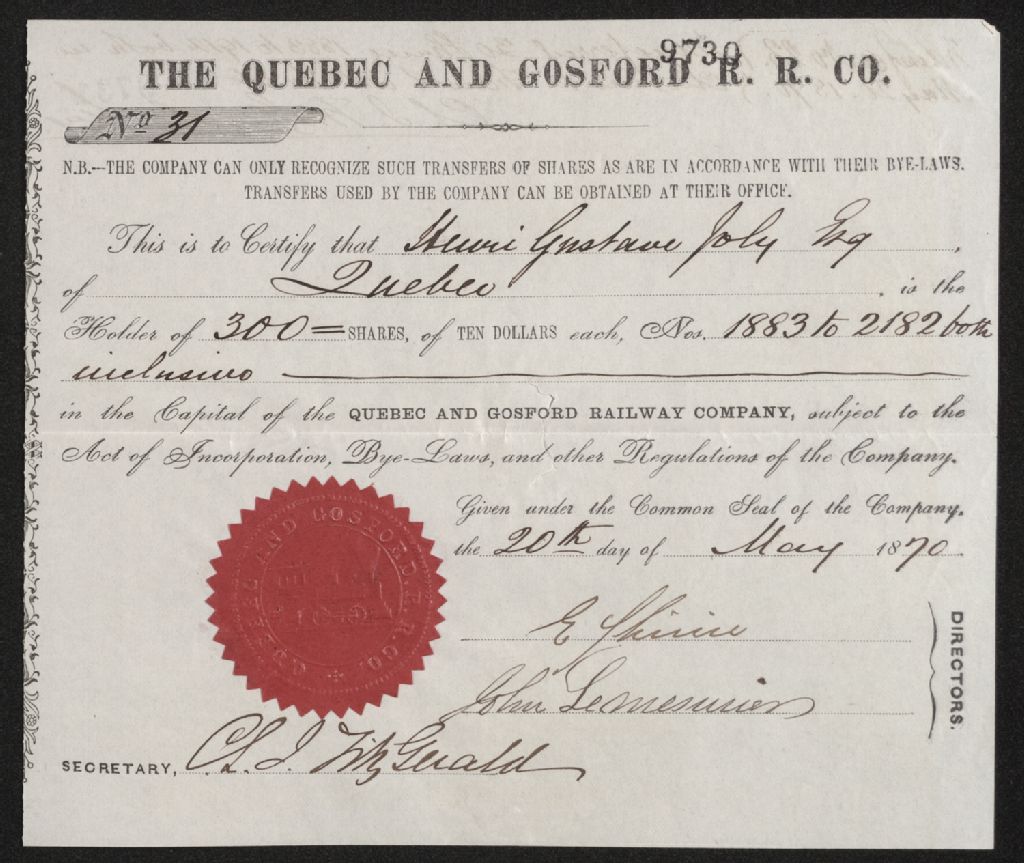 9730
THE QUEBEC AND GOSFORD R. R. CO.
No 31
N.B.—THE COMPANY CAN ONLY RECOGNIZE SUCH TRANSFERS OF SHARES AS ARE IN ACCORDANCE WITH THEIR BYE-LAWS.
TRANSFERS USED BY THE COMPANY CAN BE OBTAINED AT THEIR OFFICE.
This is to Certify that Henri Gustave Joly Esq,
of Quebec is the
Holder of 300= SHARES, of TEN DOLLARS each, Nos. 1883 to 2182 both
inclusive
in the Capital of the QUEBEC AND GOSFORD RAILWAY COMPANY, subject to the
Act of Incorporation, Bye-Laws, and other Regulations of the Company.
Given under the Common Seal of the Company.
the 20th day of May 1870
QUEBEC AND GOSFORD R. R. CO.
E
John Lemesurier
DIRECTORS.
SECRETARY, FitzGerald